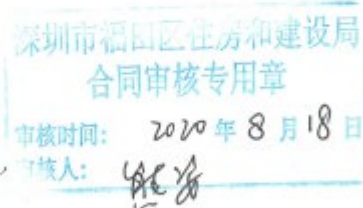 深圳市福田区住房和建设局
合同审核专用章
审核时间: 2020 年 8 月 18 日
审核人: